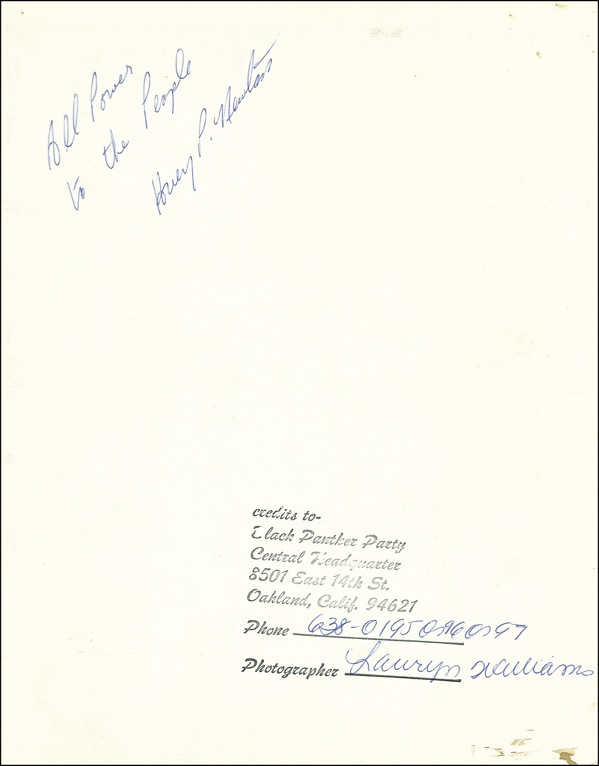 All Power
to the People
Huey P. Newton
credits to-
Black Panther Party
Central Headquarter
8501 East 14th St.
Oakland, Calif. 94621
Phone 638-0195 0196 0197
Photographer Lauryn Williams